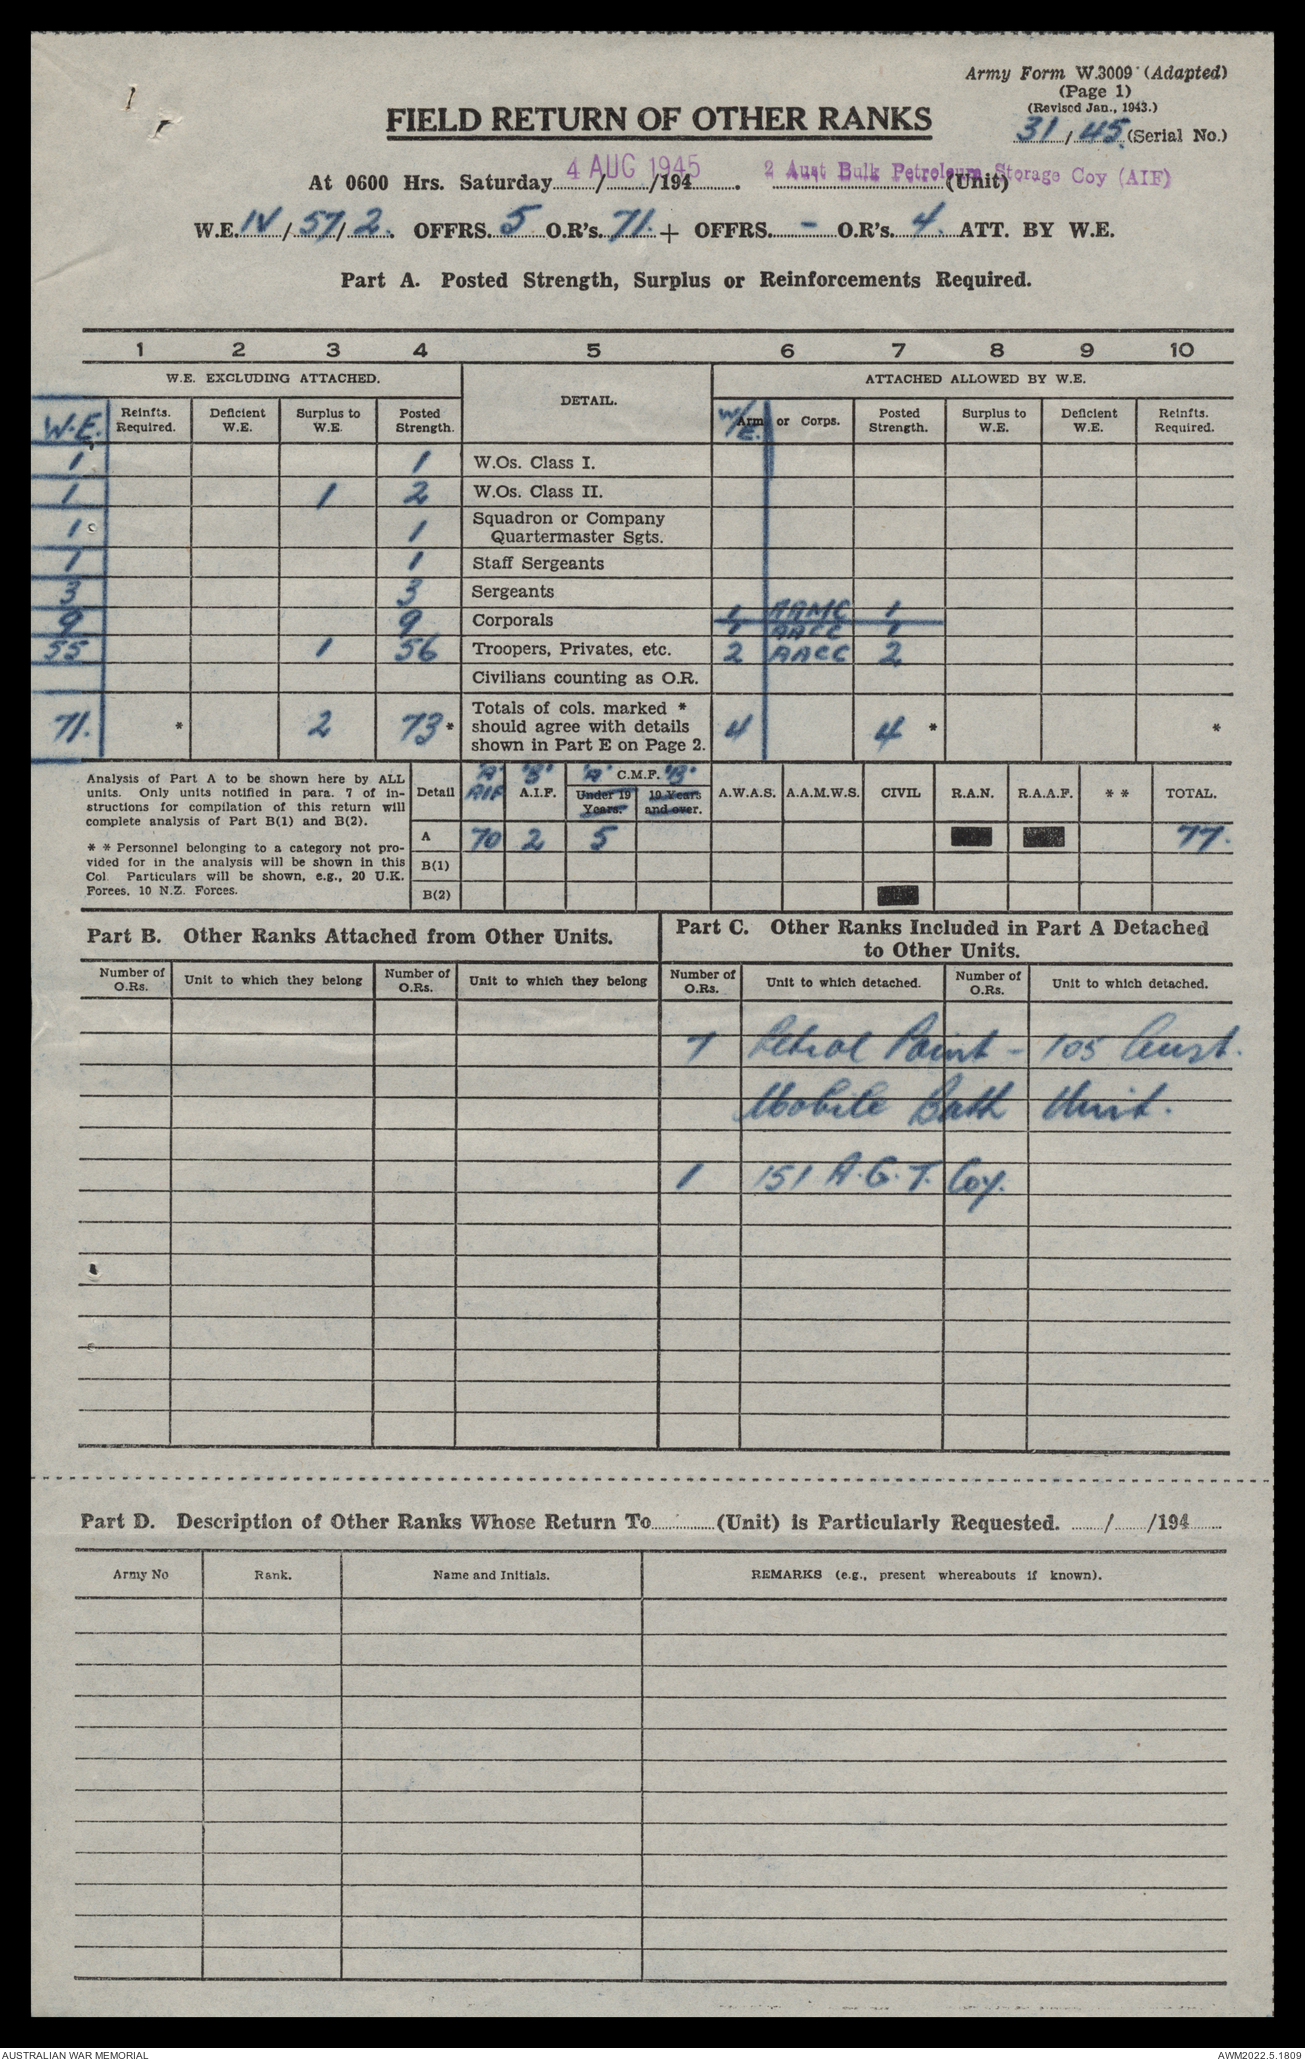 Army Form W.3009 (Adapted)
(Page 1)
(Revised Jan., 1943.)
FIELD RETURN OF OTHER RANKS
31 / 45 (Serial No.)
At 0600 Hrs. Saturday 4 AUG 1945 / /194 . 2 Aust Bulk Petroleum Storage Coy (AIF) (Unit)
W.E. IV / 57 / 2. OFFRS. 5 O.R's. 71. + OFFRS. - O.R's. 4. ATT. BY W.E.
Part A. Posted Strength, Surplus or Reinforcements Required.
1 2 3 4 5 6 7 8 9 10
W.E. EXCLUDING ATTACHED. DETAIL. ATTACHED ALLOWED BY W.E.
W.E. Reinfts. Required. Deficient W.E. Surplus to W.E. Posted Strength. W/E. Arm or Corps. Posted Strength. Surplus to W.E. Deficient W.E. Reinfts. Required.
1 1 W.Os. Class I.
1 1 2 W.Os. Class II.
1 1 Squadron or Company Quartermaster Sgts.
1 1 Staff Sergeants
3 3 Sergeants
9 9 Corporals 1 AAMC 1
1 AACC 1
55 1 56 Troopers, Privates, etc. 2 AACC 2
Civilians counting as O.R.
71. * 2 73 * Totals of cols. marked * should agree with details shown in Part E on Page 2. 4 4 * *
Analysis of Part A to be shown here by ALL
units. Only units notified in para. 7 of in-
structions for compilation of this return will
complete analysis of Part B(1) and B(2).
* * Personnel belonging to a category not pro-
vided for in the analysis will be shown in this
Col. Particulars will be shown, e.g., 20 U.K.
Forces, 10 N.Z. Forces.
Detail 'A' AIF 'B' A.I.F. 'A' C.M.F. 'B' Under 19 Years. 19 Years and over. A.W.A.S. A.A.M.W.S. CIVIL R.A.N. R.A.A.F. * * TOTAL.
A 70 2 5 77.
B(1)
B(2)
Part B. Other Ranks Attached from Other Units.
Part C. Other Ranks Included in Part A Detached
to Other Units.
Number of O.Rs. Unit to which they belong Number of O.Rs. Unit to which they belong Number of O.Rs. Unit to which detached. Number of O.Rs. Unit to which detached.
7 Petrol Point - 105 Aust.
Mobile Bath Unit.
1 151 A.G.T. Coy.
Part D. Description of Other Ranks Whose Return To (Unit) is Particularly Requested. / /194
Army No Rank. Name and Initials. REMARKS (e.g., present whereabouts if known).
AUSTRALIAN WAR MEMORIAL AWM2022.5.1809